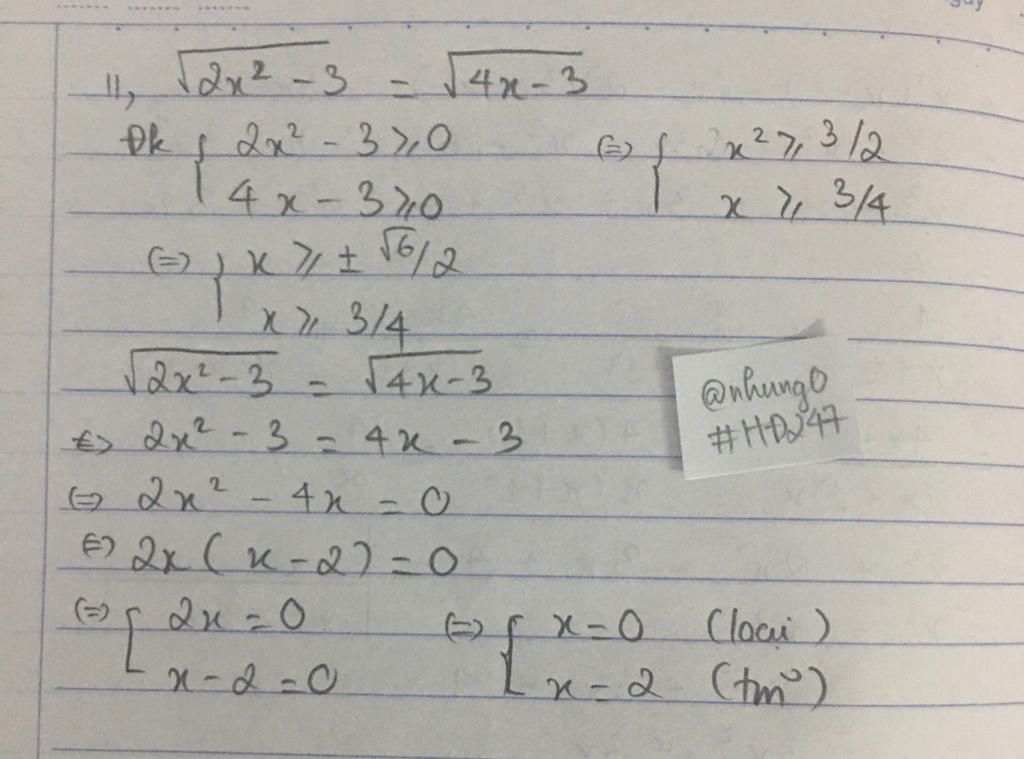 11, √2x² - 3 = √4x - 3
Đk { 2x² - 3 ⩾ 0 (=) { x² ⩾ 3/2
4x - 3 ⩾ 0 x ⩾ 3/4
(=) { x ⩾ ± √6/2
x ⩾ 3/4
√2x² - 3 = √4x - 3
(=) 2x² - 3 = 4x - 3
(=) 2x² - 4x = 0
(=) 2x ( x - 2) = 0
(=) [ 2x = 0 (=) [ x = 0 (loại)
x - 2 = 0 x = 2 (tm)
@nhung0
#HD247